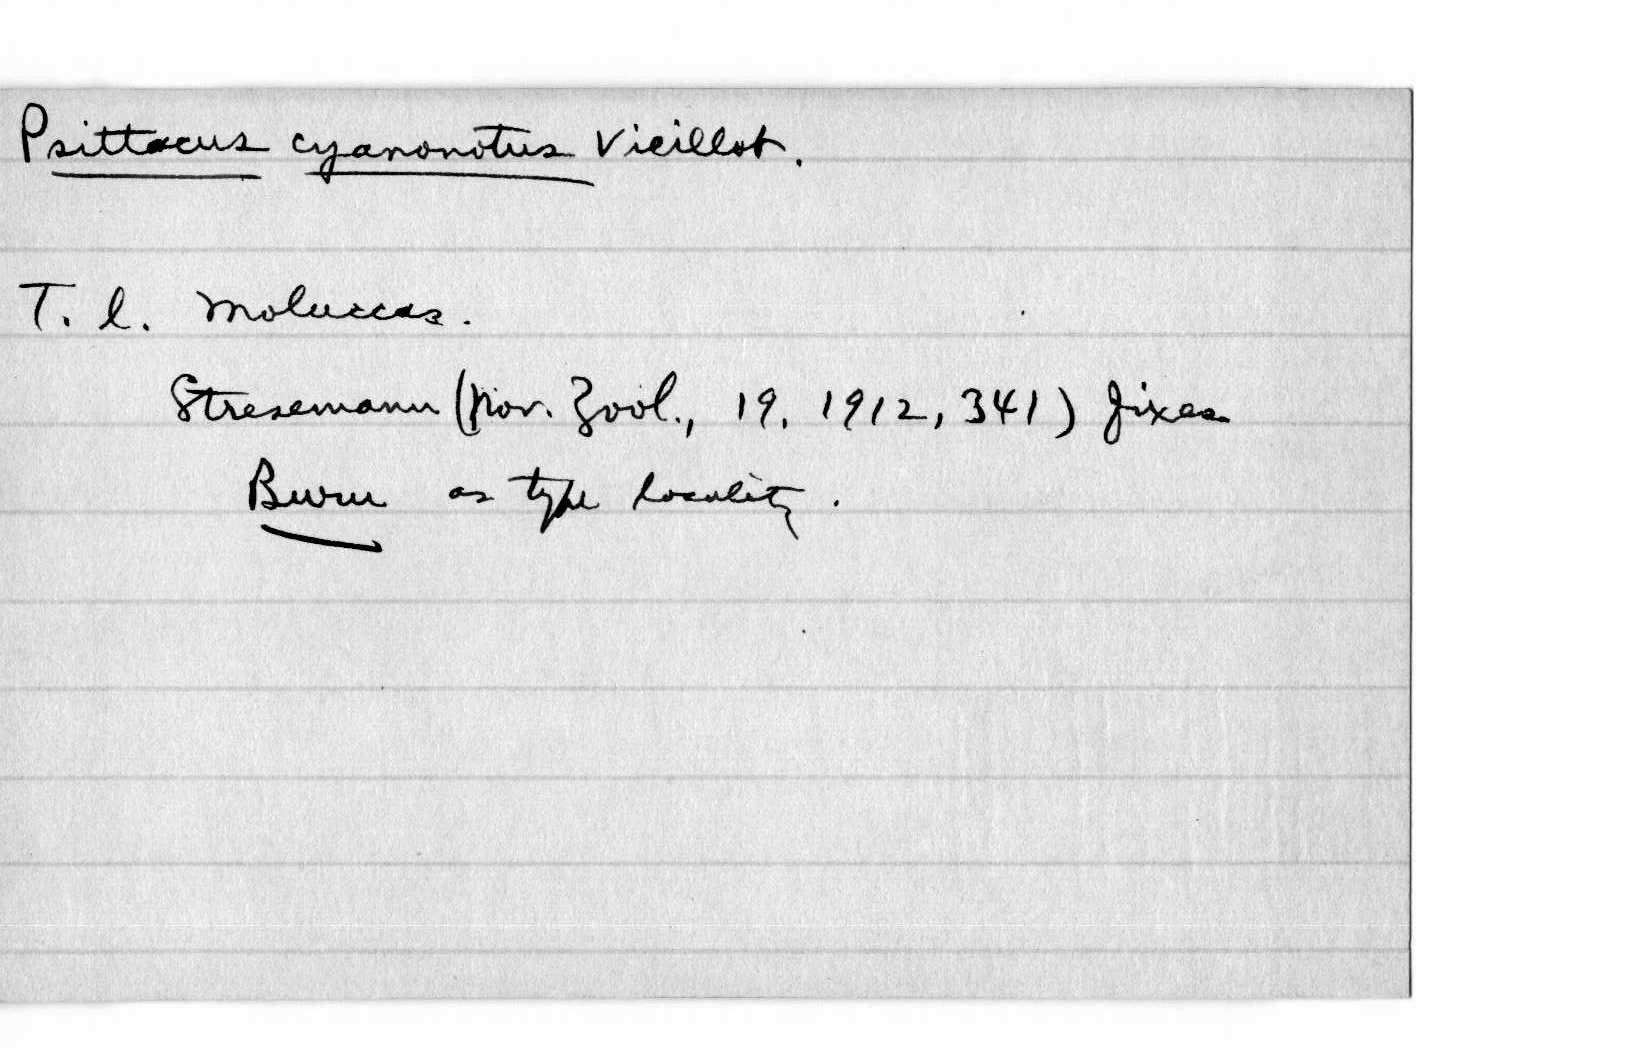 Psittacus cyanonotus Vieillot.
T. l. Moluccas.
Stresemann (Nov. Zool., 19, 1912, 341) fixes
Buru as type locality.